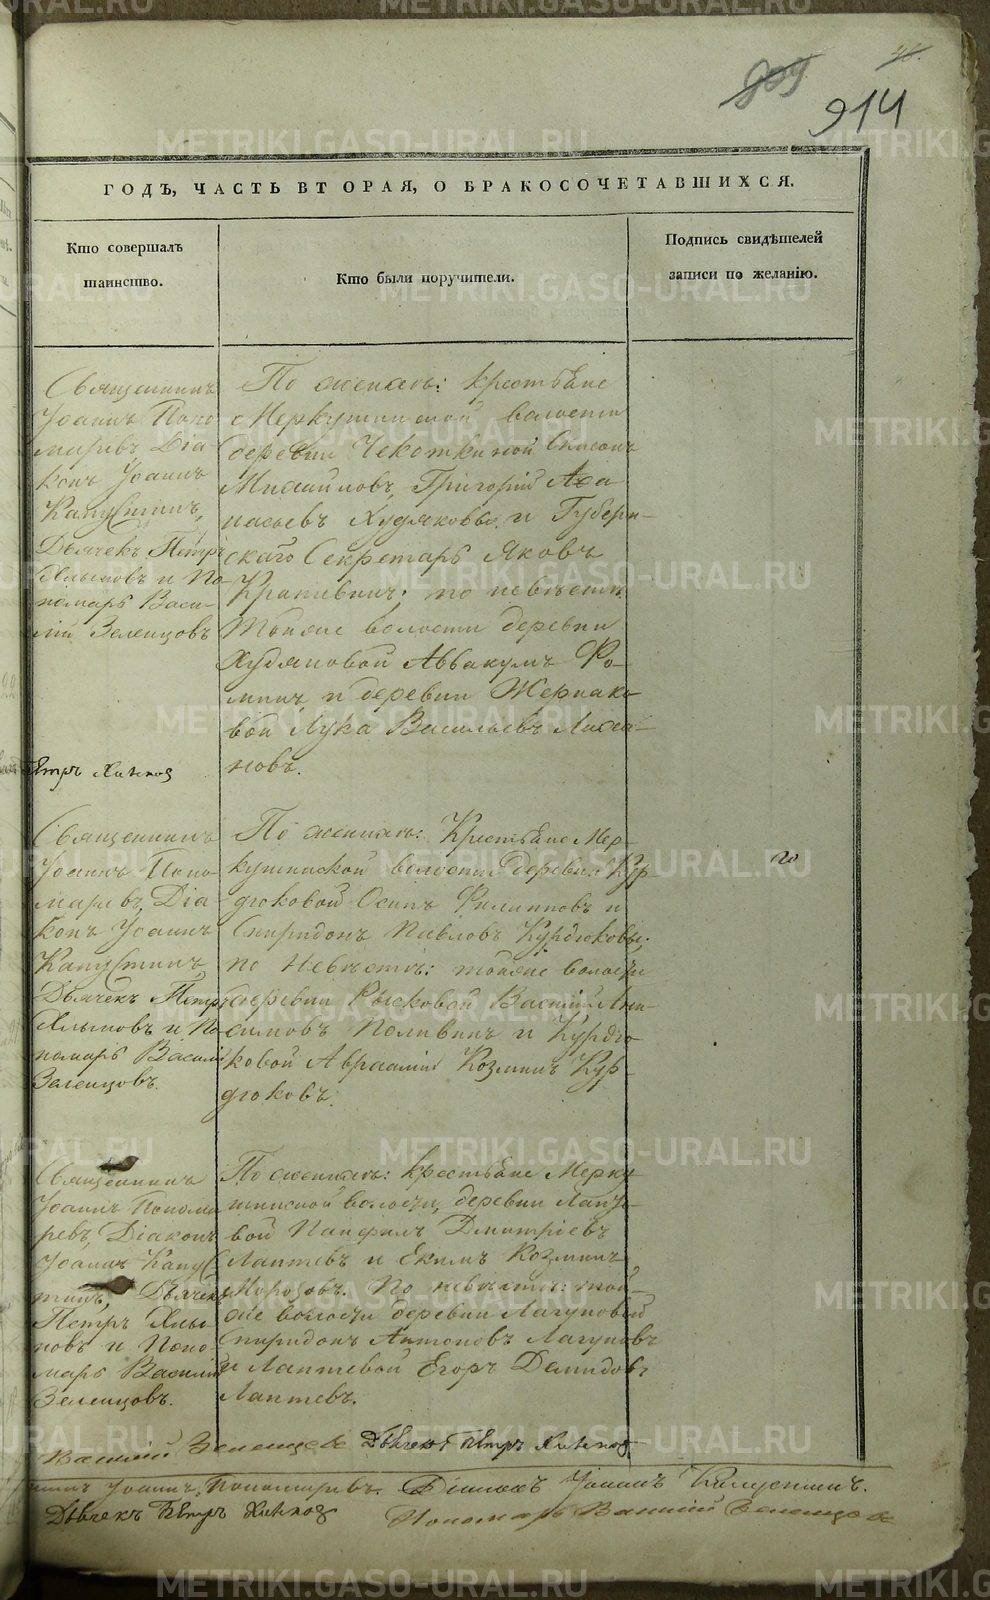 914
ГОДЪ, ЧАСТЬ ВТОРАЯ, О БРАКОСОЧЕТАВШИХСЯ.
Кто совершалъ
таинство.
Кто были поручители.
Подпись свидѣтелей
записи по желанію.
Священникъ
Іоаннъ Поно
маревъ, Діа
конъ Іоаннъ
Капустинъ,
Дьячекъ Петръ
Хлыновъ и По
номарь Васи-
лій Зеленцовъ
Петръ Хлынов
По женихѣ: крестьяне
Меркушинской волости
деревни Чекоткиной
Михайловъ, Григорій Афа
насьевъ Худяковы, и Губерн-
скаго Секретарь Яковъ
по невѣстѣ
Тойже волости деревни
Худяковой Аввакумъ Фо-
минъ и деревни Жернако-
вой Лука Васильевъ
Священникъ
Іоаннъ Поно-
маревъ, Діа
конъ Іоаннъ
Капустинъ
Дьячекъ Петръ
Хлыновъ и По-
номарь Василій
Зеленцовъ.
По женихѣ: Крестьяне Мер-
кушинской волости деревни Кур
дюковой Осипъ Филипповъ и
Спиридонъ Павловъ Курдюковы;
по Невѣстѣ: тойже волости
деревни Рысковой Василій Ани-
симовъ Поливинъ и Курдю-
ковой Авраамій Козминъ Кур-
дюковъ.
Священникъ
Іоаннъ Понома
ревъ, Діаконъ
Іоаннъ Капус
тинъ, Дьячекъ
Петръ Хлы-
новъ и Поно-
марь Василій
Зеленцовъ.
По женихѣ: крестьяне Мерку
шинской волости, деревни Лапте-
вой Панфилъ Дмитріевъ
Лаптевъ и Екимъ Козминъ
Морозовъ. По невѣстѣ: той-
же волости деревни Лагуновой
Спиридонъ Антоновъ Лагуновъ
и Лаптевой Егоръ Демидовъ
Лаптевъ.
Василій Зеленцовъ Дьячекъ Петръ Хлынов
Іоаннъ Пономаревъ. Діаконъ Іоаннъ Капустинъ.
Дьячекъ Петръ Хлынов Пономарь Василій Зеленцовъ
METRIKI.GASO-URAL.RU